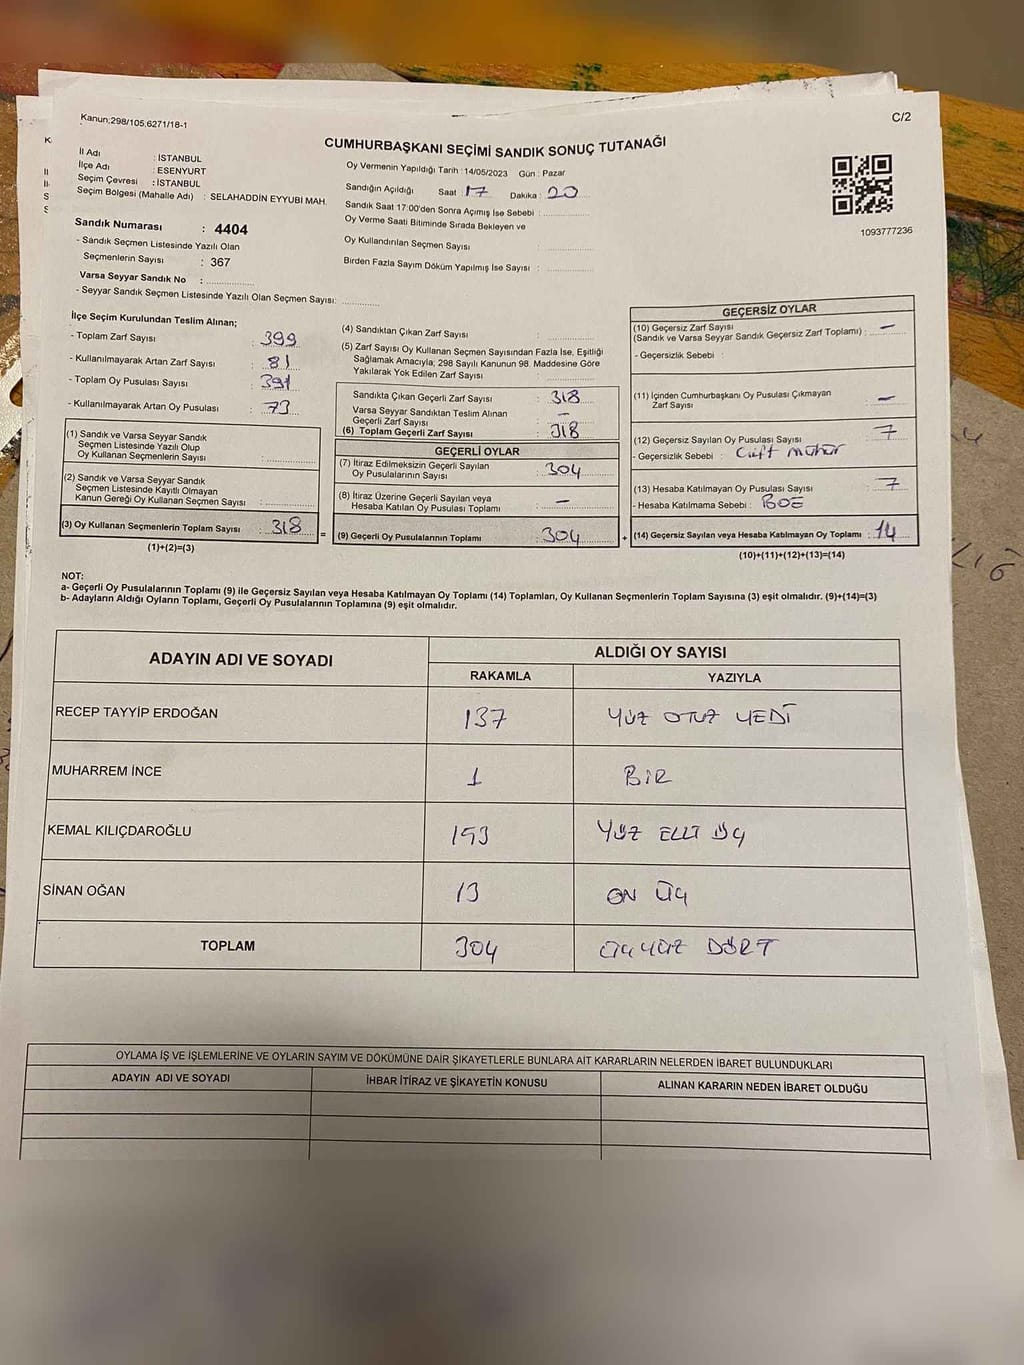 Kanun:298/105,6271/18-1
C/2
CUMHURBAŞKANI SEÇİMİ SANDIK SONUÇ TUTANAĞI
İl Adı : İSTANBUL
İlçe Adı : ESENYURT
Seçim Çevresi : İSTANBUL
Seçim Bölgesi (Mahalle Adı) : SELAHADDİN EYYUBİ MAH.
Sandık Numarası : 4404
- Sandık Seçmen Listesinde Yazılı Olan
Seçmenlerin Sayısı : 367
Varsa Seyyar Sandık No :
- Seyyar Sandık Seçmen Listesinde Yazılı Olan Seçmen Sayısı:
Oy Vermenin Yapıldığı Tarih : 14/05/2023 Gün : Pazar
Sandığın Açıldığı Saat : 17 Dakika : 20
Sandık Saat 17:00'den Sonra Açımış İse Sebebi :
Oy Verme Saati Bitiminde Sırada Bekleyen ve
Oy Kullandırılan Seçmen Sayısı :
Birden Fazla Sayım Döküm Yapılmış İse Sayısı :
1093777236
İlçe Seçim Kurulundan Teslim Alınan;
- Toplam Zarf Sayısı : 399
- Kullanılmayarak Artan Zarf Sayısı : 81
- Toplam Oy Pusulası Sayısı : 391
- Kullanılmayarak Artan Oy Pusulası : 73
(1) Sandık ve Varsa Seyyar Sandık
Seçmen Listesinde Yazılı Olup
Oy Kullanan Seçmenlerin Sayısı :
(2) Sandık ve Varsa Seyyar Sandık
Seçmen Listesinde Kayıtlı Olmayan
Kanun Gereği Oy Kullanan Seçmen Sayısı :
(3) Oy Kullanan Seçmenlerin Toplam Sayısı : 318
(1)+(2)=(3)
(4) Sandıktan Çıkan Zarf Sayısı :
(5) Zarf Sayısı Oy Kullanan Seçmen Sayısından Fazla İse, Eşitliği
Sağlamak Amacıyla; 298 Sayılı Kanunun 98. Maddesine Göre
Yakılarak Yok Edilen Zarf Sayısı :
Sandıkta Çıkan Geçerli Zarf Sayısı : 318
Varsa Seyyar Sandıktan Teslim Alınan
Geçerli Zarf Sayısı : —
(6) Toplam Geçerli Zarf Sayısı : 318
GEÇERLİ OYLAR
(7) İtiraz Edilmeksizin Geçerli Sayılan
Oy Pusulalarının Sayısı : 304
(8) İtiraz Üzerine Geçerli Sayılan veya
Hesaba Katılan Oy Pusulası Toplamı : —
= (9) Geçerli Oy Pusulalarının Toplamı : 304 +
GEÇERSİZ OYLAR
(10) Geçersiz Zarf Sayısı
(Sandık ve Varsa Seyyar Sandık Geçersiz Zarf Toplamı) : —
- Geçersizlik Sebebi :
(11) İçinden Cumhurbaşkanı Oy Pusulası Çıkmayan
Zarf Sayısı : —
(12) Geçersiz Sayılan Oy Pusulası Sayısı : 7
- Geçersizlik Sebebi : Çift mühür
(13) Hesaba Katılmayan Oy Pusulası Sayısı : 7
- Hesaba Katılmama Sebebi : BOŞ
(14) Geçersiz Sayılan veya Hesaba Katılmayan Oy Toplamı : 14
(10)+(11)+(12)+(13)=(14)
NOT:
a- Geçerli Oy Pusulalarının Toplamı (9) ile Geçersiz Sayılan veya Hesaba Katılmayan Oy Toplamı (14) Toplamları, Oy Kullanan Seçmenlerin Toplam Sayısına (3) eşit olmalıdır. (9)+(14)=(3)
b- Adayların Aldığı Oyların Toplamı, Geçerli Oy Pusulalarının Toplamına (9) eşit olmalıdır.
ADAYIN ADI VE SOYADI
ALDIĞI OY SAYISI
RAKAMLA YAZIYLA
RECEP TAYYİP ERDOĞAN 137 YÜZ OTUZ YEDİ
MUHARREM İNCE 1 BİR
KEMAL KILIÇDAROĞLU 153 YÜZ ELLİ ÜÇ
SİNAN OĞAN 13 ON ÜÇ
TOPLAM 304 ÜÇ YÜZ DÖRT
OYLAMA İŞ VE İŞLEMLERİNE VE OYLARIN SAYIM VE DÖKÜMÜNE DAİR ŞİKAYETLERLE BUNLARA AİT KARARLARIN NELERDEN İBARET BULUNDUKLARI
ADAYIN ADI VE SOYADI İHBAR İTİRAZ VE ŞİKAYETİN KONUSU ALINAN KARARIN NEDEN İBARET OLDUĞU